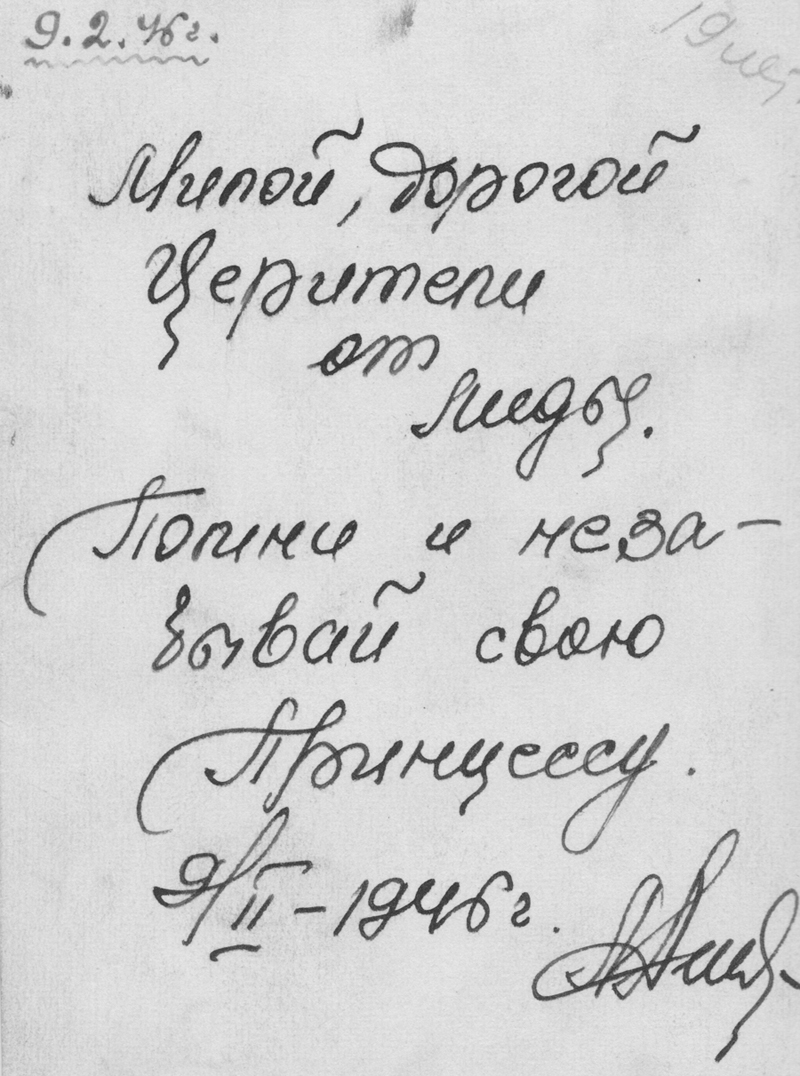 9.2.46г.
19 лет
Милой, дорогой
Церители
от
Лиды.
Помни и неза-
бывай свою
Принцессу.
9/II-1946г.